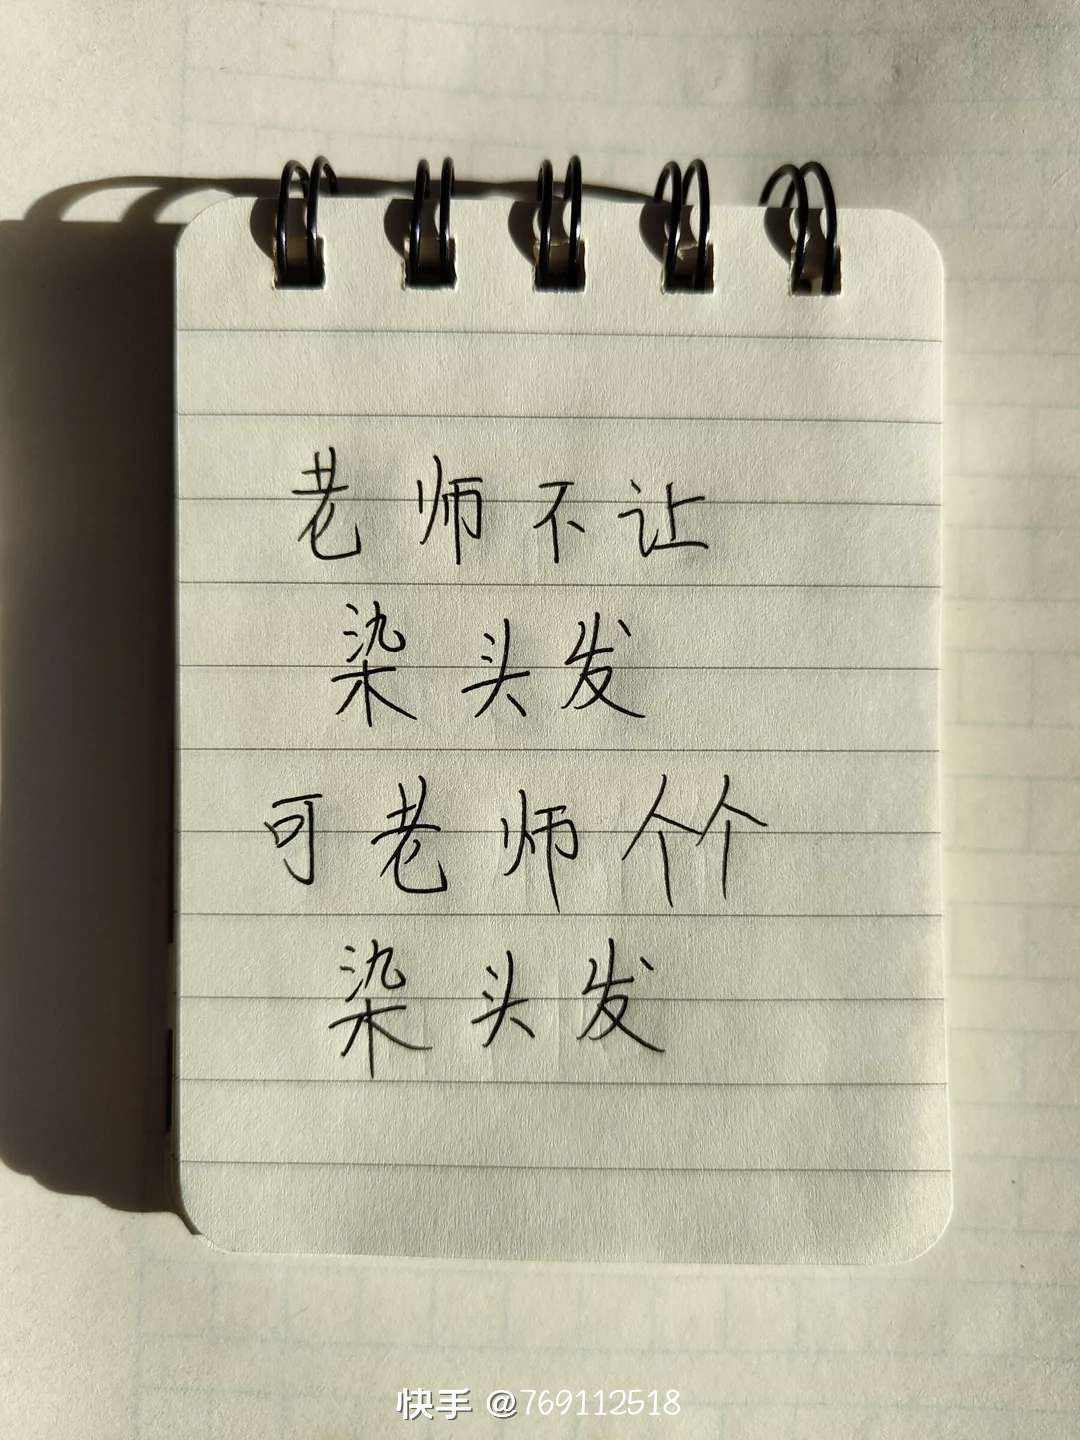 老师不让
染头发
可老师个个
染头发
快手 @769112518